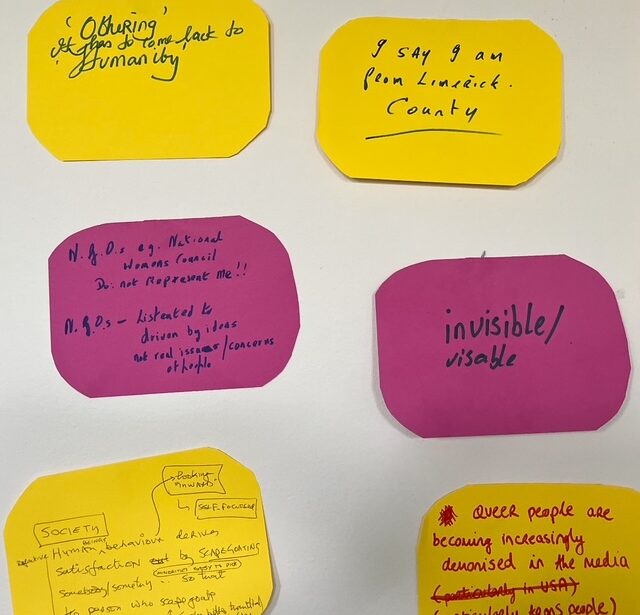 'Othering'
It has to come back to
'Humanity'
I SAY I am
from Limerick.
County
N.G.O.s eg. National
Womens Council
Do not Represent Me!!
N.G.O.s - Listented to
driven by ideas
not real issues/concerns
of people
invisible/
visable
Looking
inwards
SELF FOCUSED
SOCIETY
Human behaviour derives
satisfaction by SCAPEGOATING
somebody/something so that
the person who scapegoats
QUEER people are
becoming increasingly
demonised in the media
(particularly in USA)
trans people)